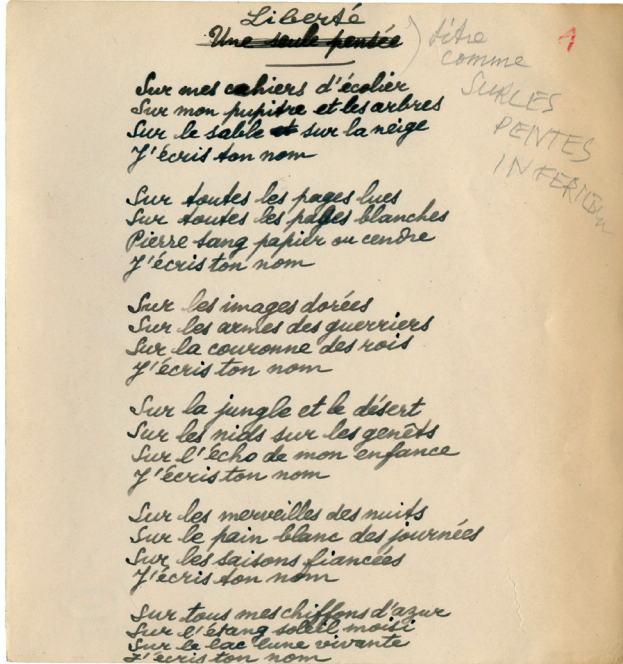 Liberté
Une seule pensée
titre
comme
SUR LES
PENTES
Sur mes cahiers d'écolier
Sur mon pupitre et les arbres
Sur le sable et sur la neige
J'écris ton nom
Sur toutes les pages lues
Sur toutes les pages blanches
Pierre sang papier ou cendre
J'écris ton nom
Sur les images dorées
Sur les armes des guerriers
Sur la couronne des rois
J'écris ton nom
Sur la jungle et le désert
Sur les nids sur les genêts
Sur l'écho de mon enfance
J'écris ton nom
Sur les merveilles des nuits
Sur le pain blanc des journées
Sur les saisons fiancées
J'écris ton nom
Sur tous mes chiffons d'azur
Sur l'étang soleil moisi
Sur le lac lune vivante
J'écris ton nom